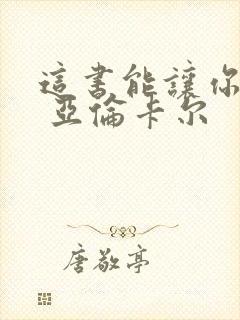 這書能讓你
亞倫卡尔
唐敬亭